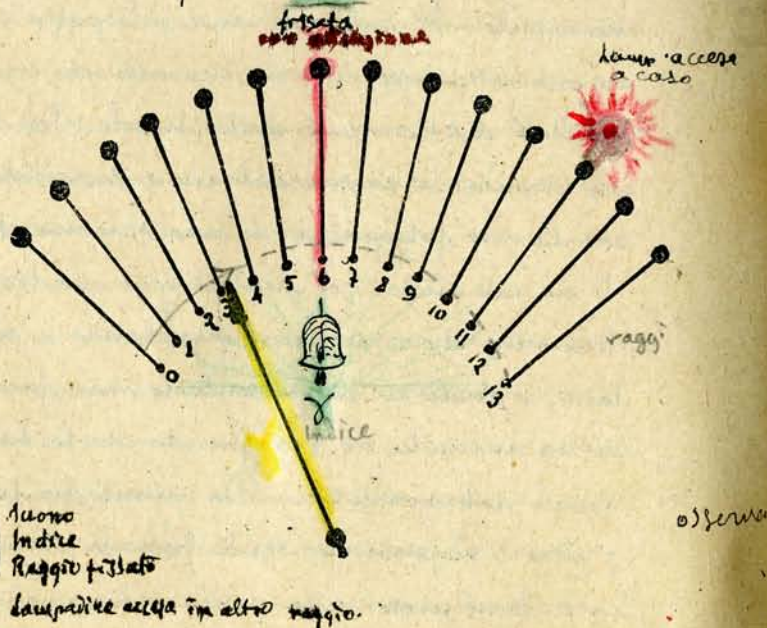 frisata
Lamp. accesa
a caso
0
1
2
3
4
5
6
7
8
9
10
11
12
13
raggi
Indice
Suono
Indice
Raggio fissato
Lampadina accesa in altro raggio.